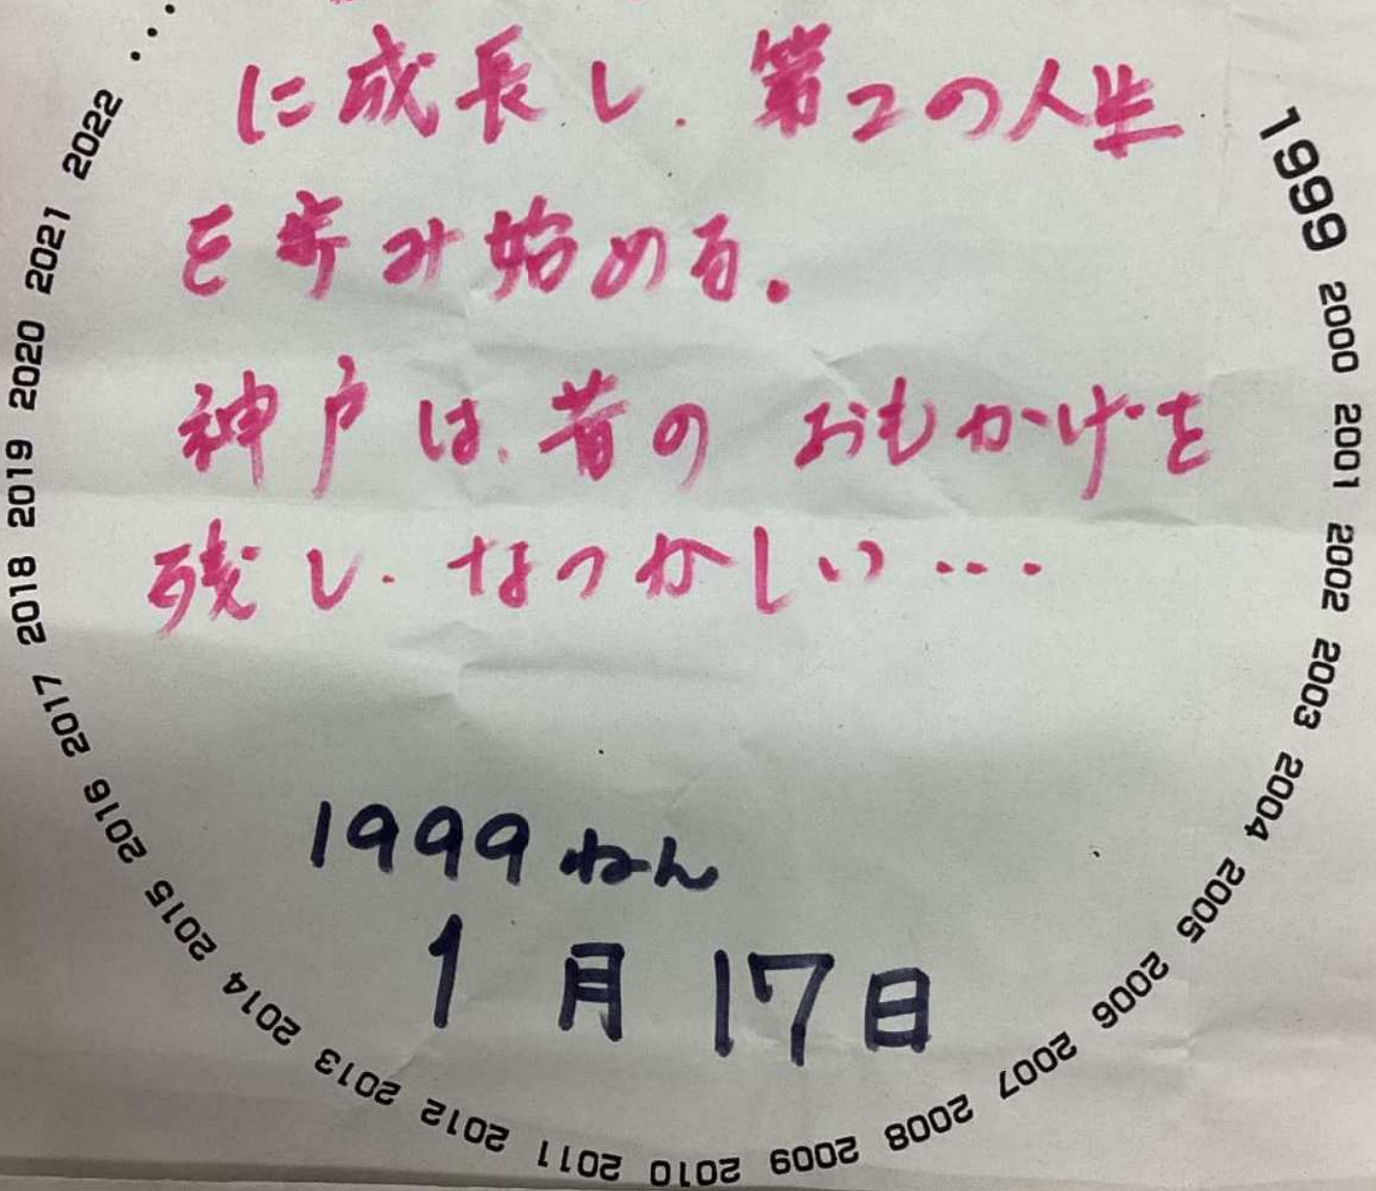 に成長し.第2の人生
を歩み始める.
神戸は.昔のおもかげを
残し.なつかしい...
1999ねん
1月17日
1999 2000 2001 2002 2003 2004 2005 2006 2007 2008 2009 2010 2011 2012 2013 2014 2015 2016 2017 2018 2019 2020 2021 2022 ...